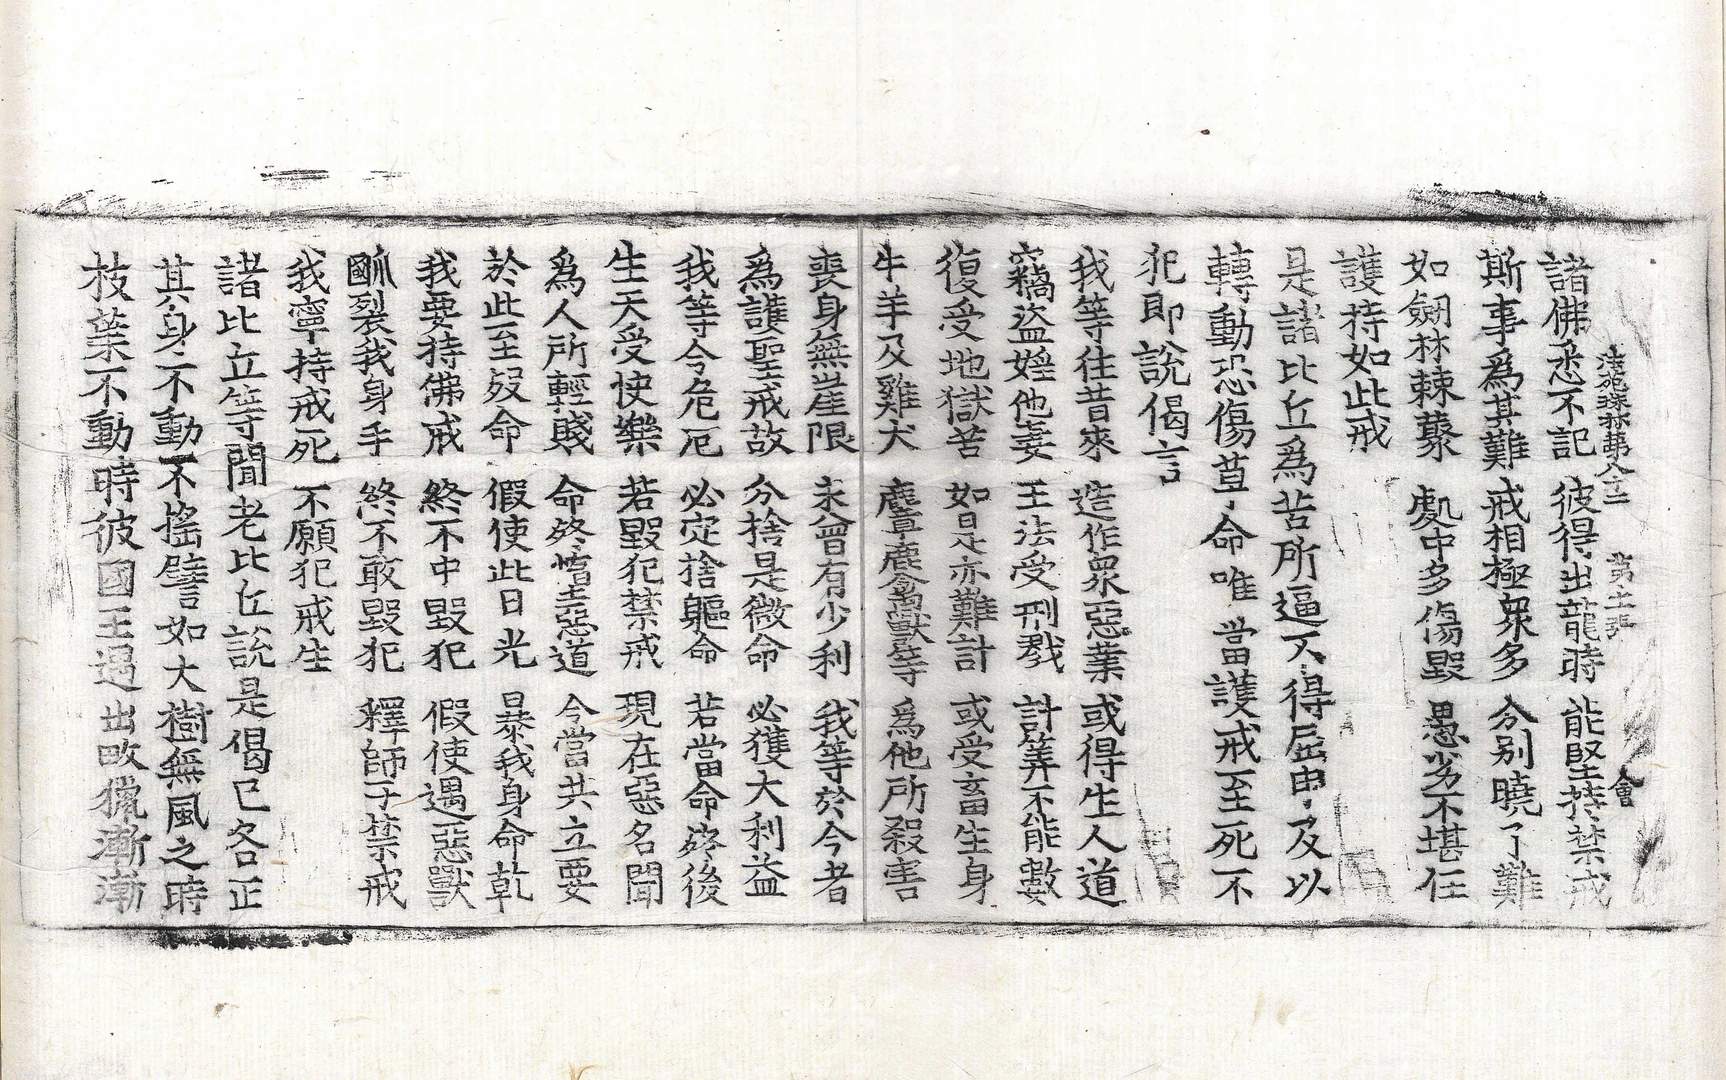 法苑珠林第八十二　第十二張　會
諸佛悉不記　彼得出龍時　能堅持禁戒
斯事為甚難　戒相極衆多　分别曉了難
如劒林棘藂　處中多傷毀　愚劣不堪任
護持如此戒
是諸比丘為苦所逼不得屈申及以
轉動恐傷草命唯當護戒至死不
犯即說偈言
我等往昔來　造作衆惡業　或得生人道
竊盜婬他妻　王法受刑戮　計筭不能數
復受地獄苦　如是亦難計　或受畜生身
牛羊及雞犬　麞鹿禽獸等　為他所殺害
喪身無崖限　未曾有少利　我等於今者
為護聖戒故　分捨是微命　必獲大利益
我等今危厄　必定捨軀命　若當命終後
生天受快樂　若毀犯禁戒　現在惡名聞
為人所輕賤　命終墮惡道　今當共立要
於此至歿命　假使此日光　暴我身命乾
我要持佛戒　終不中毀犯　假使遇惡獸
䶥裂我身手　終不敢毀犯　釋師子禁戒
我寧持戒死　不願犯戒生
諸比丘等聞老比丘說是偈已各正
其身不動不搖譬如大樹無風之時
枝葉不動時彼國王遇出畋獵漸漸